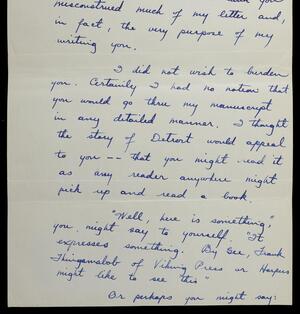 you
misconstrued much of my letter and,
in fact, the very purpose of my
writing you.
I did not wish to burden
you. Certainly I had no notion that
you would go thru my manuscript
in any detailed manner. I thought
the story of Detroit would appeal
to you -- that you might read it
as any reader anywhere might
pick up and read a book.
"Well, here is something,"
you might say to yourself. "It
expresses something. By Gee, Frank
Thingamabob of Viking Press or Harpers
might like to see this"
Or perhaps you might say: